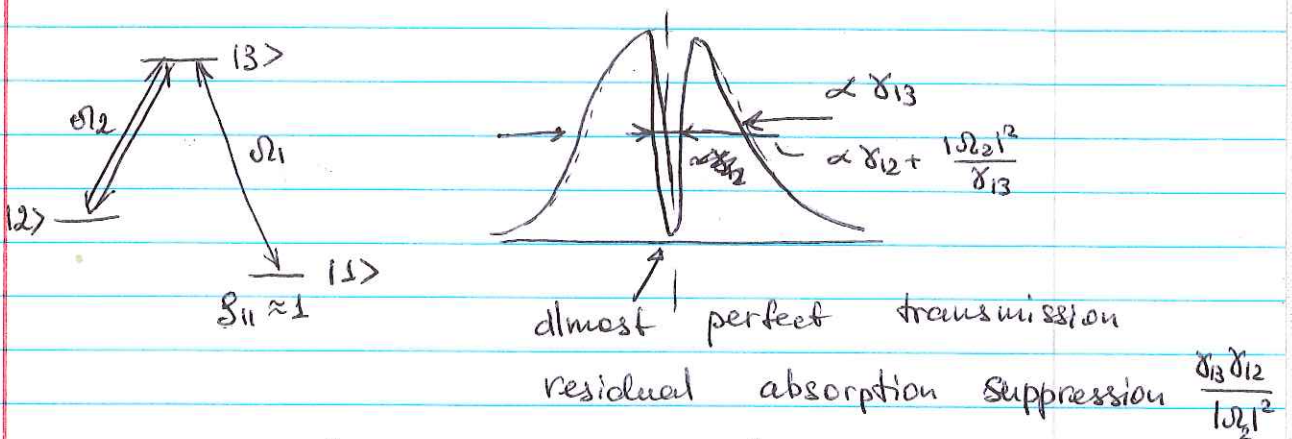 |3>
Ω2
Ω1
∝ γ13
∝ γ12 + |Ω2|²/γ13
|2>
|1>
ρ11 ≈ 1
almost perfect transmission
residual absorption suppression γ13γ12/|Ω2|²